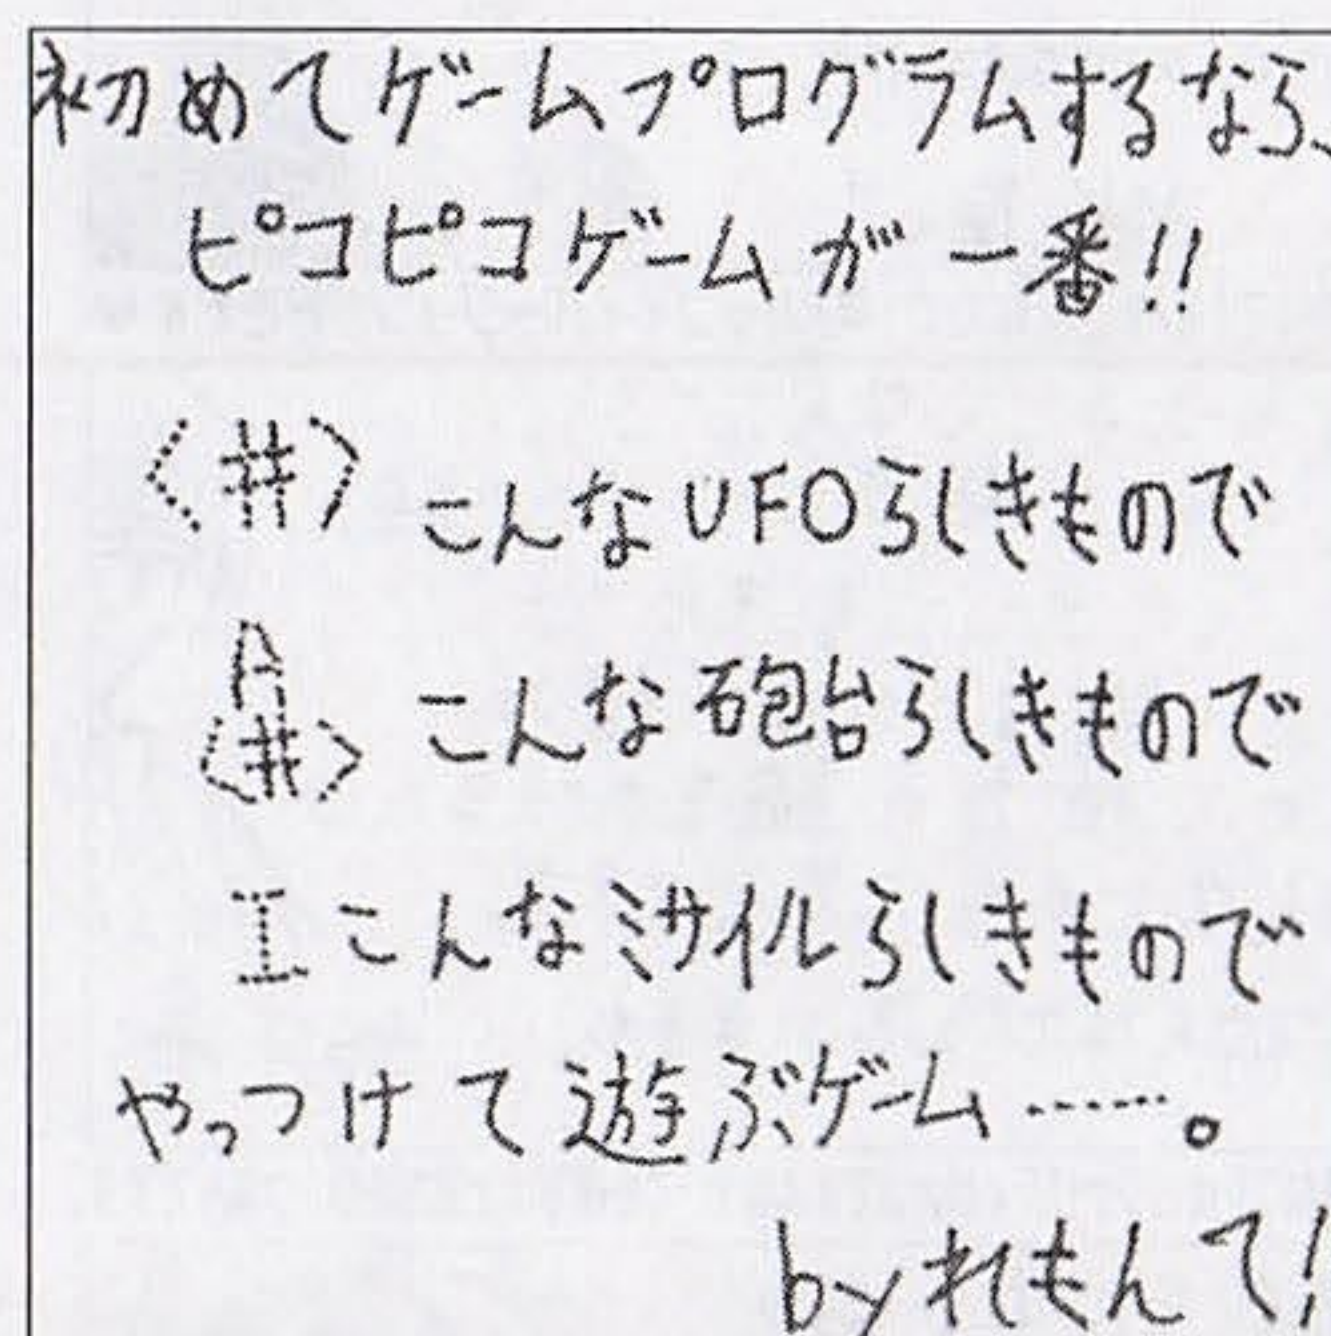 初めてゲームプログラムするなら、
ピコピコゲームが一番!!
<#> こんなUFOらしきもので
A
<#> こんな砲台らしきもので
I こんなミサイルらしきもので
やっつけて遊ぶゲーム……。
byれもんて!